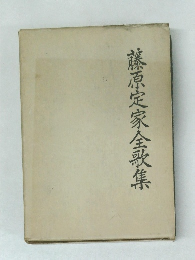 藤原定家全歌集